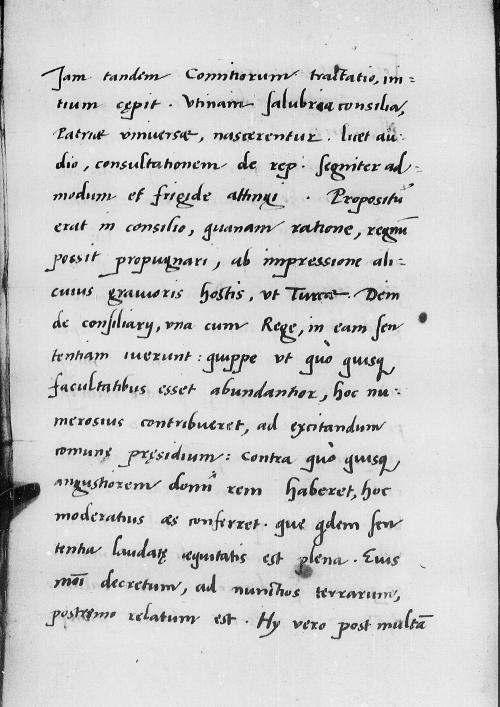 Jam tandem Comitiorum tractatio, ini=
tium cępit. Vtinam salubria consilia,
Patriæ vniuersæ, nascerentur. licet au=
dio, consultationem de rep. segniter ad=
modum et frigide attingi. Propositū
erat in consilio, quanam ratione, regnū
possit propugnari, ab impressione ali=
cuius grauioris hostis, vt Turcæ. Dein
de consiliarij, vna cum Rege, in eam sen
tentiam iuerunt: quippe vt quò quisq
facultatibus esset abundantior, hoc nu=
merosius contribueret, ad excitandum
comune pręsidium: Contra quò quisq
angustiorem domi rem haberet, hoc
moderatius æs conferret. que qdem sen
tentia laudatę æquitatis est plena. Euis
mōi decretum, ad nuncios terrarum,
postremo relatum est. Hy vero post multā